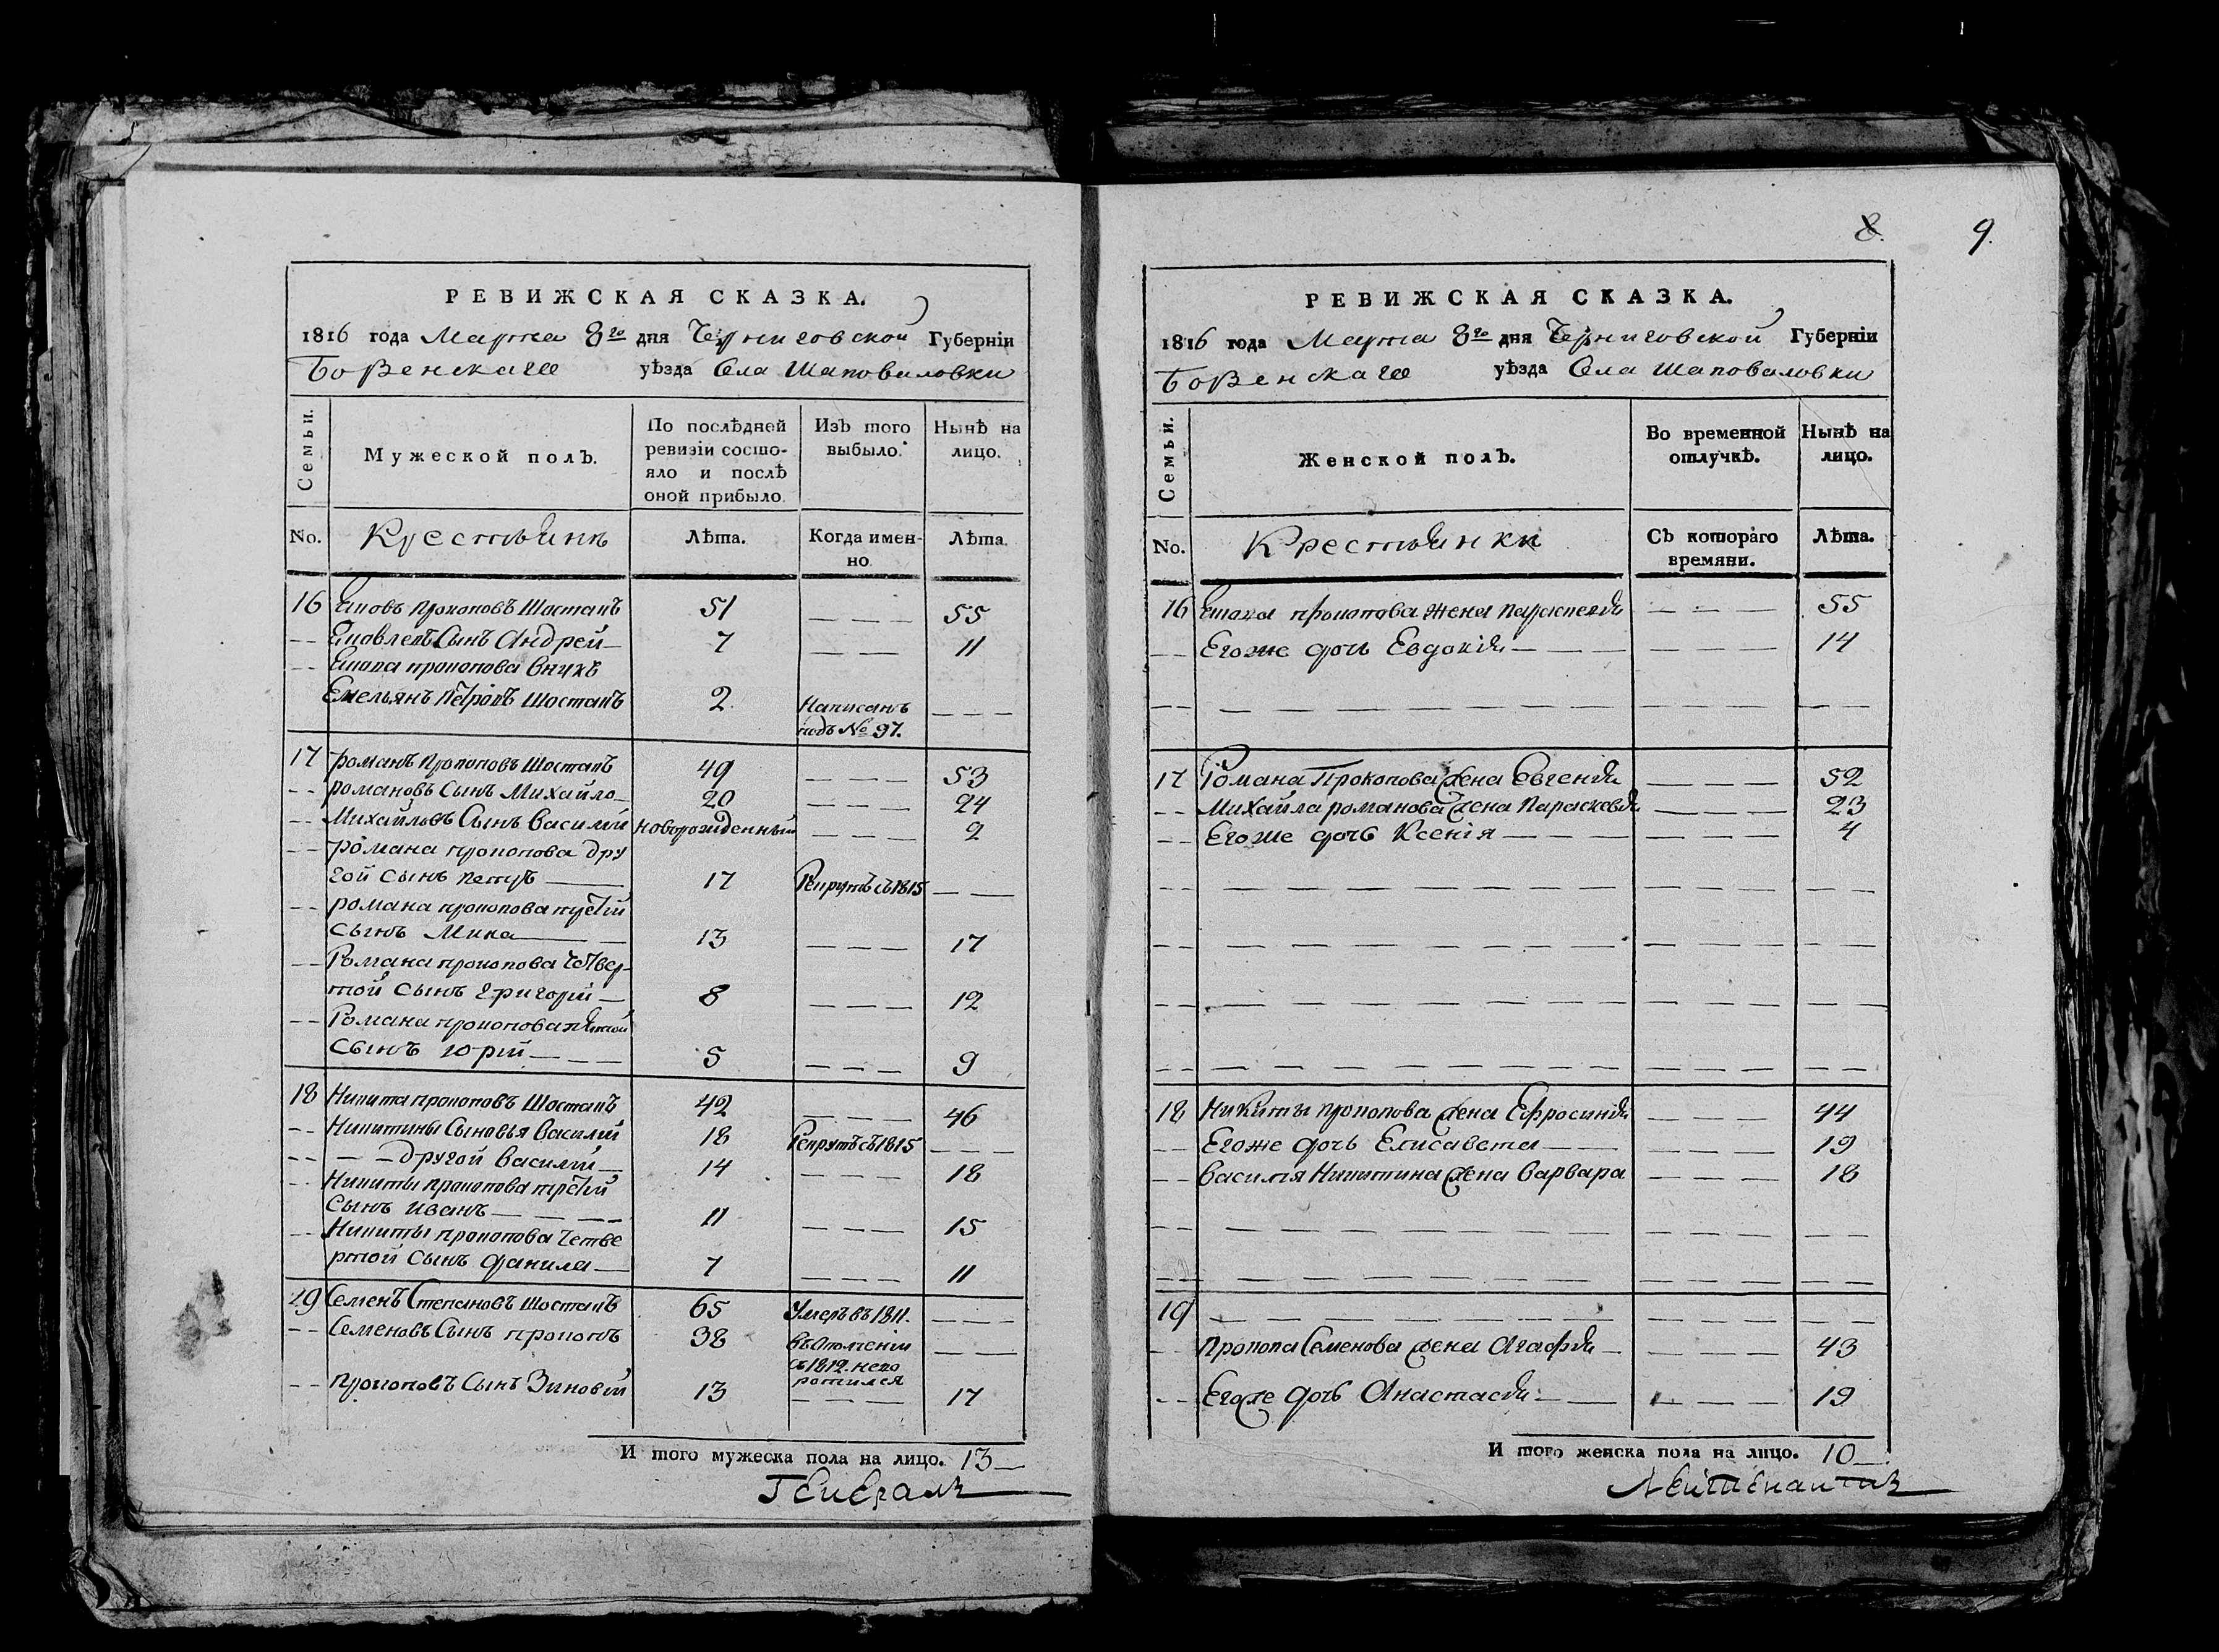 РЕВИЖСКАЯ СКАЗКА.
1816 года Марта 8го дня Черниговской Губернiи
Борзенскаго уѣзда Села Шаповаловки
Семьи.
Мужеской полъ.
По послѣдней ревизiи состо-
яло и послѣ
оной прибыло.
Изъ того выбыло.
Нынѣ на лицо.
No. Крестьянъ Лѣта. Когда имен-
но. Лѣта.
16 Яковъ Прокоповъ Шостакъ 51 — — — 55
-- Яковлевъ Сынъ Андрей 7 — — 11
-- Якова прокопова внукъ
Емельянъ Петровъ Шостакъ 2 Написанъ
подъ № 97. — — —
17 романъ Прокоповъ Шостакъ 49 — — — 53
-- романовъ Сынъ Михайло 20 — — — 24
-- Михайловъ Сынъ Василий новорожденный — — — 2
-- романа прокопова дру
гой сынъ петръ 17 Рекрутъ съ 1815 — —
-- романа прокопова третiй
сынъ Мина 13 — — — 17
-- Романа прокопова четвер-
той сынъ григорiй 8 — — — 12
-- Романа прокопова пятой
сынъ юрiй 5 — — — 9
18 Никита прокоповъ Шостакъ 42 — — — 46
-- Никитины Сыновья Василий 18 Рекрутъ съ 1815 — — —
-- другой василiй 14 — — — 18
-- Никиты прокопова третiй
сынъ иванъ 11 — — — 15
-- Никиты прокопова четве
ртой сынъ данила 7 — — — 11
19 Семенъ Степановъ Шостакъ 65 Умеръ въ 1811. — — —
-- Семеновъ Сынъ прокопъ 38 въ Ополченiи
съ 1812. нево
ротился — —
-- прокоповъ Сынъ Зиновiй 13 — — — 17
И того мужеска пола на лицо. 13
Генералъ
8. 9.
РЕВИЖСКАЯ СКАЗКА.
1816 года Марта 8го дня Черниговской Губернiи
Борзенскаго уѣзда Села Шаповаловки
Семьи.
Женской полъ.
Во временной отлучкѣ.
Нынѣ на лицо.
No. Крестьянки Съ котораго
времяни. Лѣта.
16 Якова прокопова жена параскевiя — — — 55
-- Егоже дочь Евдокiя — — — 14
17 Романа Прокопова жена Евгенiя — — — 52
-- Михайла романова жена Параскевiя — — — 23
-- Егоже дочь Ксенiя — — — 4
18 Никиты прокопова жена Ефросинiя — — — 44
-- Егоже дочь Елисавета — — — 19
-- василiя Никитина жена варвара — — — 18
19
-- прокопа Семенова жена Агафiя — — — 43
-- Егоже дочь Анастасiя — — — 19
И того женска пола на лицо. 10
Лейтенантъ